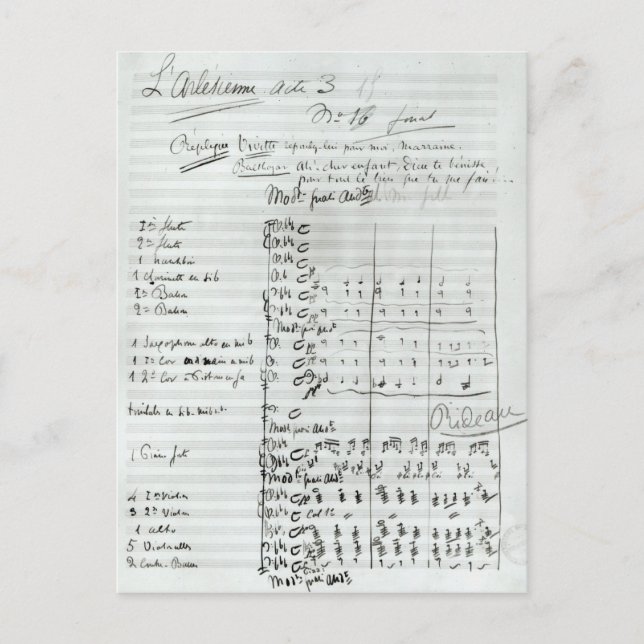 L'Arlésienne acte 3
No 16 final
Réplique Vivette répondez-lui pour moi, Marraine.
Balthazar Ah! cher enfant, Dieu te bénisse
pour tout le bien que tu me fais!...
Modto quasi Andte
1re flute
2e flute
1 hautbois
1 clarinette en sib
1er Basson
2e Basson
Modto quasi Andte
1 Saxophone alto en mib
1 1er Cor en mib
1 2e Cor à Pistons
timbales en sib. mib
Rideau
Modto quasi Andte
1 Piano forte
Modto quasi Andte
4 1er Violon
3 2e Violon
Col 1o
1 alto
5 Violoncelles
2 Contre-Basses
Modto quasi Andte